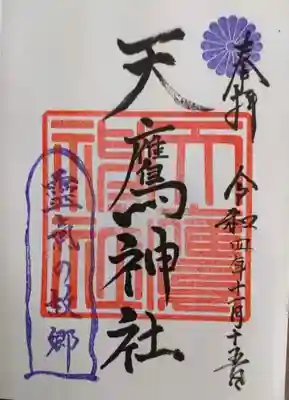 奉拝
令和四年十一月十五日
天鷹神社
天鷹神社
霊気の故郷